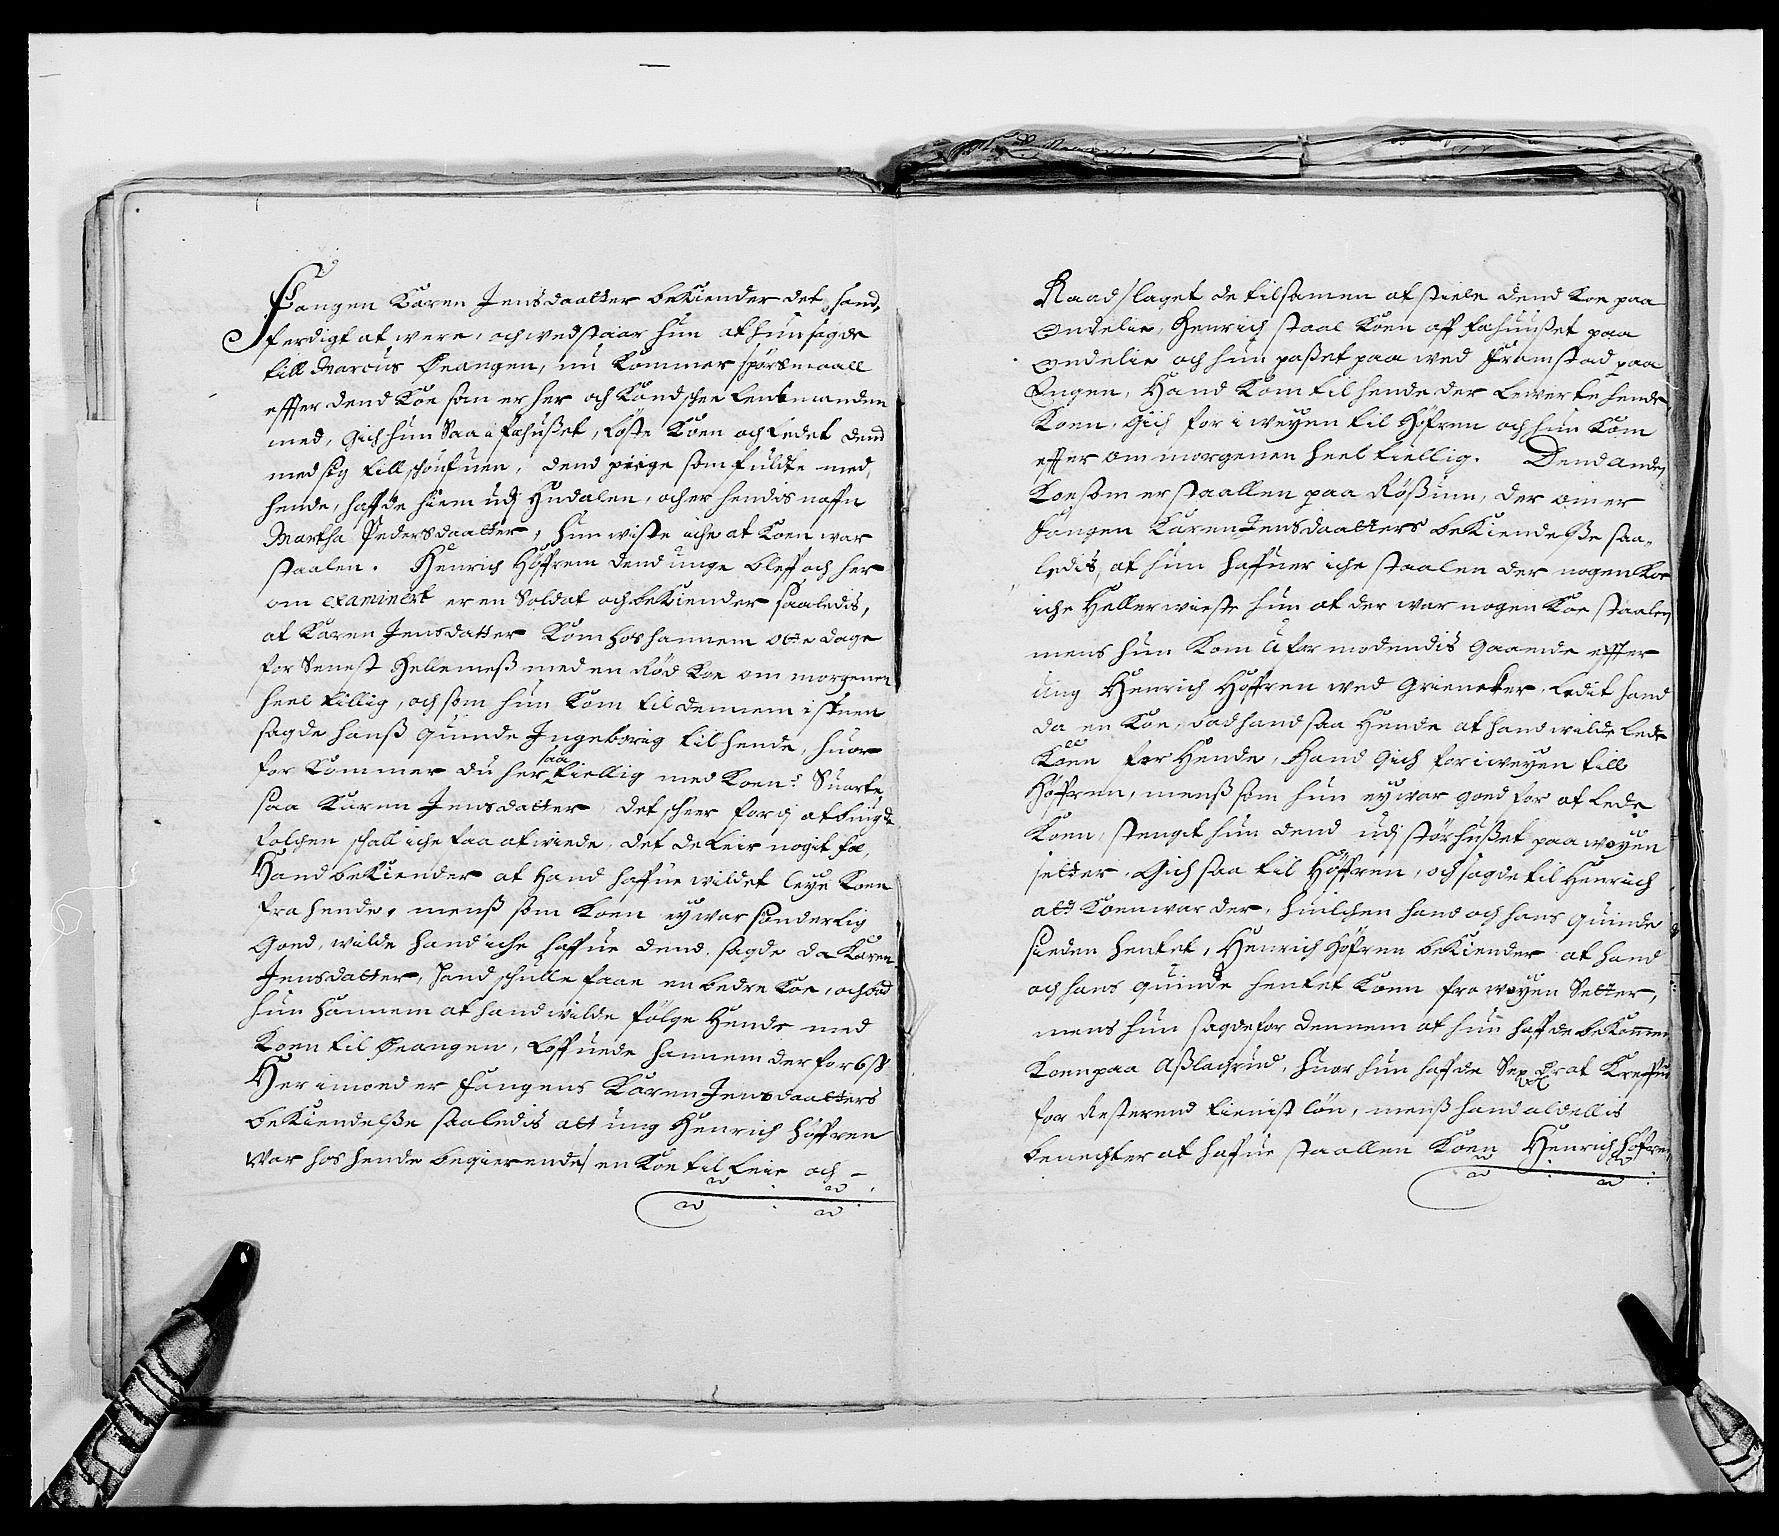 Fangen Karen Jensdaatter bekiender det, sand,
ferdigt at were, och vedstaar hun at hun sagde
till Marcus Øeangen, nu kommer spørsmaall
effter dend Koe som er her och Kondschee lendsmanden
med, gich hun saa i fæhußet, løste Koen och ledet dend
med sig till schoufuen, dend piige som fulte med,
hende, hafde hiem udj Hudalen, och er hendis naffn
Martha Pedersdaatter, hun wiste iche at Koen war
staalen. Henrich Høffren dend unge bleff och her
om examinert er en Soldat och bekiender saaledis,
at Karen Jensdatter Kom hos hannem otte dage
for senest Hellemeß med en Rød Koe om morgenen
heel tillig, och som hun Kom til dennem i stuen
sagde hanß quinde Ingeborig til hende, huor
for kommer du her saa tiellig med Koen? Suarte
saa Karen Jensdatter det scheer for di at bygde
folchen schall iche faa at wiede, det de leir nogit fæ,
Hand bekiender at hand hafue wildet leye Koen
fra hende, menß som Koen ey war sønderlig
Goed, wilde hand iche hafue dend. sagde da Karen
Jensdatter, hand schulle faae en bedre Koe, och bad
hun hannem at hand wilde følge hende med
Koen til Øeangen, loffuede hannem der for 6 ß
Her imoed er Fangens Karen Jensdaatters
bekiendelße saaledis att ung Henrich Høffren
War hos hende begierendes en Koe til leie och –
Raadslaget de tilsamen at stiele dend Koe paa
Ondelie, Henrich staal Koen aff fæhuußet paa
Ondelie och hun paßet paa wed Framstad paa
Engen, Hand kom til hende der lewerte hende
Koen, gich for i weyen til Høfren och hun Kom
effter om morgenen heel tiellig. Dend anden
Koe som er staallen paa Røßiun, der om er
Fangen Karen Jensdaatters bekiendelße saa,,
ledis, at hun haffuer iche staalen der nogen Koe
iche Heller wiste hun at der war nogen Koe staalen
mens hun kom uformodendis gaaende effter
ung Henrich Høffren wed Grieneker, ledit hand
da en Koe, bad hand saa hende at hand wilde lede
Koen for hende, Hand gich for i weyen till
Høffren, menß som hun ey war goed for at lede
Koen, stengt hun dend udj størhußet paa woyen
setter, gich saa til Høffren, och sagde til Henrich
att Koen war der, huilchen hand och hans quinde
sieden hentet, Henrich Høfren bekiender at hand
och hans quinde hentet Koen fra woyen Setter,
mens hun sagde for dennem at hun hafde bekommen
Koen paa Aßlachrud, huor hun hafde Sex ort at Kreffue
for Resterend tienist løn, menß hand aldellis
benegter at hafue staallen Koen Henrich Høfren